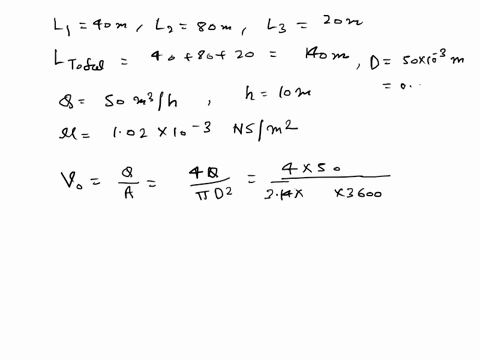 L1 = 40m, L2 = 80m, L3 = 20m
LTotal = 40+80+20 = 140m, D = 50×10-3 m
= 0..
Q = 50 m3/h, h = 10m
μ = 1.02 × 10-3 NS/m2
V0 = Q/A = 4Q/πD2 = 4×50/3.14× ×3600